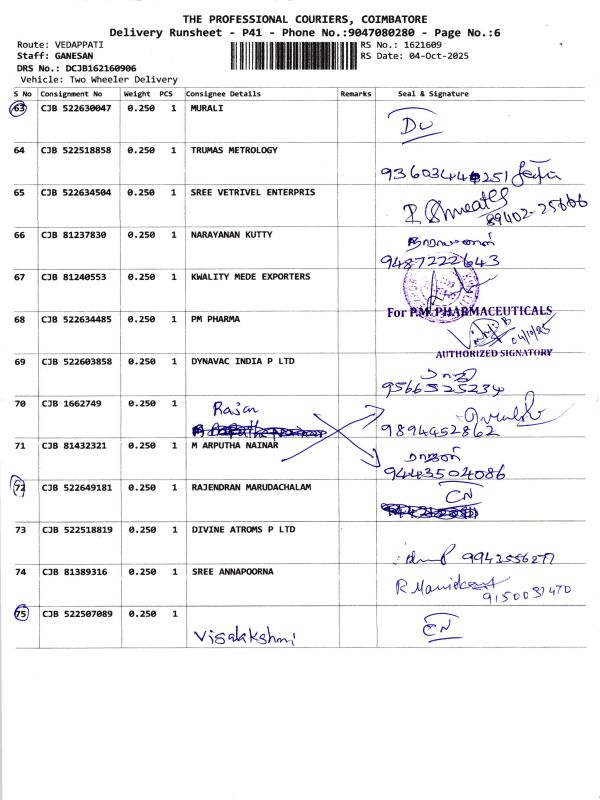 THE PROFESSIONAL COURIERS, COIMBATORE
Delivery Runsheet - P41 - Phone No.:9047080280 - Page No.:6
Route: VEDAPPATI
RS No.: 1621609
Staff: GANESAN
RS Date: 04-Oct-2025
DRS No.: DCJB162160906
Vehicle: Two Wheeler Delivery
S No Consignment No Weight PCS Consignee Details Remarks Seal & Signature
63 CJB 522630047 0.250 1 MURALI
DC
64 CJB 522518858 0.250 1 TRUMAS METROLOGY
65 CJB 522634504 0.250 1 SREE VETRIVEL ENTERPRIS
89402-25666
66 CJB 81237830 0.250 1 NARAYANAN KUTTY
9487222643
67 CJB 81240553 0.250 1 KWALITY MEDE EXPORTERS
68 CJB 522634485 0.250 1 PM PHARMA
For P.M. PHARMACEUTICALS
04/10/25
AUTHORIZED SIGNATORY
69 CJB 522603858 0.250 1 DYNAVAC INDIA P LTD
9566525234
70 CJB 1662749 0.250 1 Rajan
9894452862
71 CJB 81432321 1 0.250 M ARPUTHA NAINAR
9443504086
72 CJB 522649181 0.250 1 RAJENDRAN MARUDACHALAM
CN
73 CJB 522518819 0.250 1 DIVINE ATROMS P LTD
9942556277
74 CJB 81389316 0.250 1 SREE ANNAPOORNA
75 CJB 522507089 0.250 1
Visalakshmi
CN